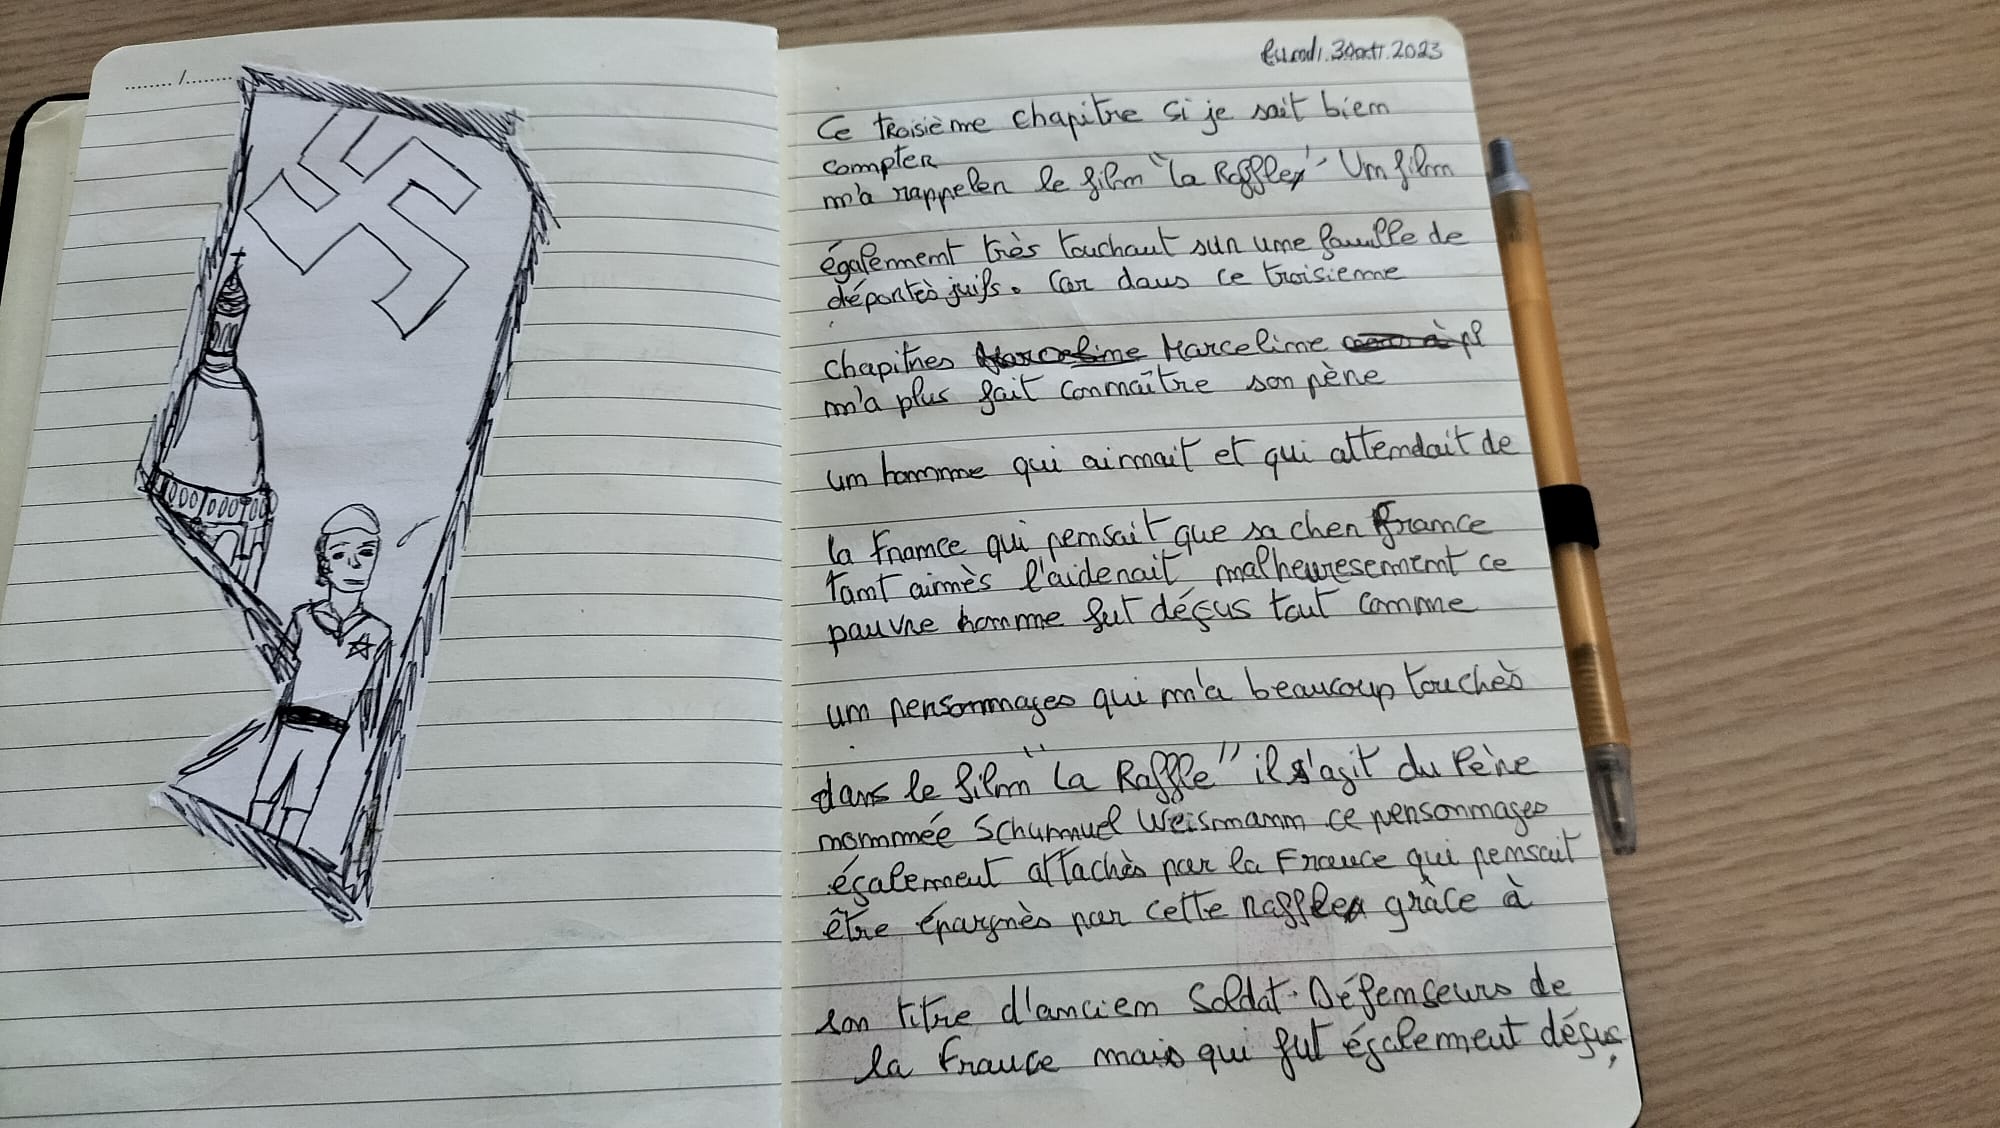 lundi.30oct.2023
Ce troisième chapitre si je sait bien
compter
m'a rappeler le film "la Raffle". Um film
également très touchaut sur ume famille de
déportès juifs. Car daus ce troisieme
chapitres Marceline Marcelime
m'a plus fait conmaître son père
um homme qui aimait et qui attemdait de
la Framce qui pemsait que sa cher France
tamt aimès l'aiderait malheuresement ce
pauvre homme fut déçus tout comme
um persommages qui m'a beaucoup touchès
dans le film "La Raffle" il s'agit du Père
mommée Schmuel Weismamm ce persommages
également attachès par la Frauce qui pemsait
être épargnès par cette raffle grâce à
son titre d'anciem Soldat. Défemseurs de
la Frauce mais qui fut également déçus,